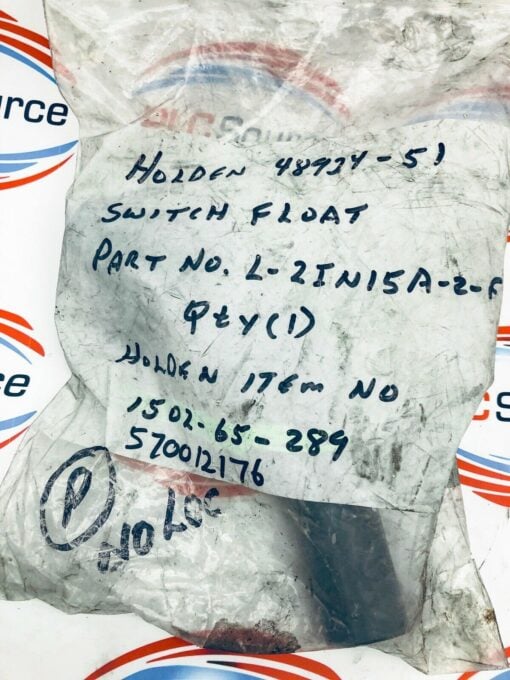 PLCSource
HOLDEN 48934-51
SWITCH FLOAT
PART NO. L-2IN15A-2-F
QTY (1)
HOLDEN ITEM NO
1502-65-289
570012176
P
NO LOC
urce